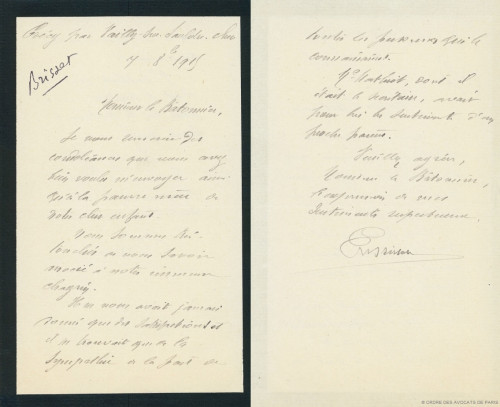 par Vailly sur Sauldre, Cher
7 8bre 1915
Brisset
Monsieur le Bâtonnier,
Je vous remercie des
condoléances que vous avez
bien voulu m'envoyer ainsi
qu'à la pauvre mère de
notre cher enfant.
Nous sommes très
touchés de vous savoir
associé à notre immense
chagrin.
Il ne nous avait jamais
donné que des satisfactions et
il ne trouvait que de la
sympathie de la part de
toutes les personnes qui le
connaissaient.
Me dont il
était le secrétaire, avait
pour lui les sentiments d'un
proche parent.
Veuillez agréer,
Monsieur le Bâtonnier,
l'expression de mes
sentiments respectueux.
© ORDRE DES AVOCATS DE PARIS